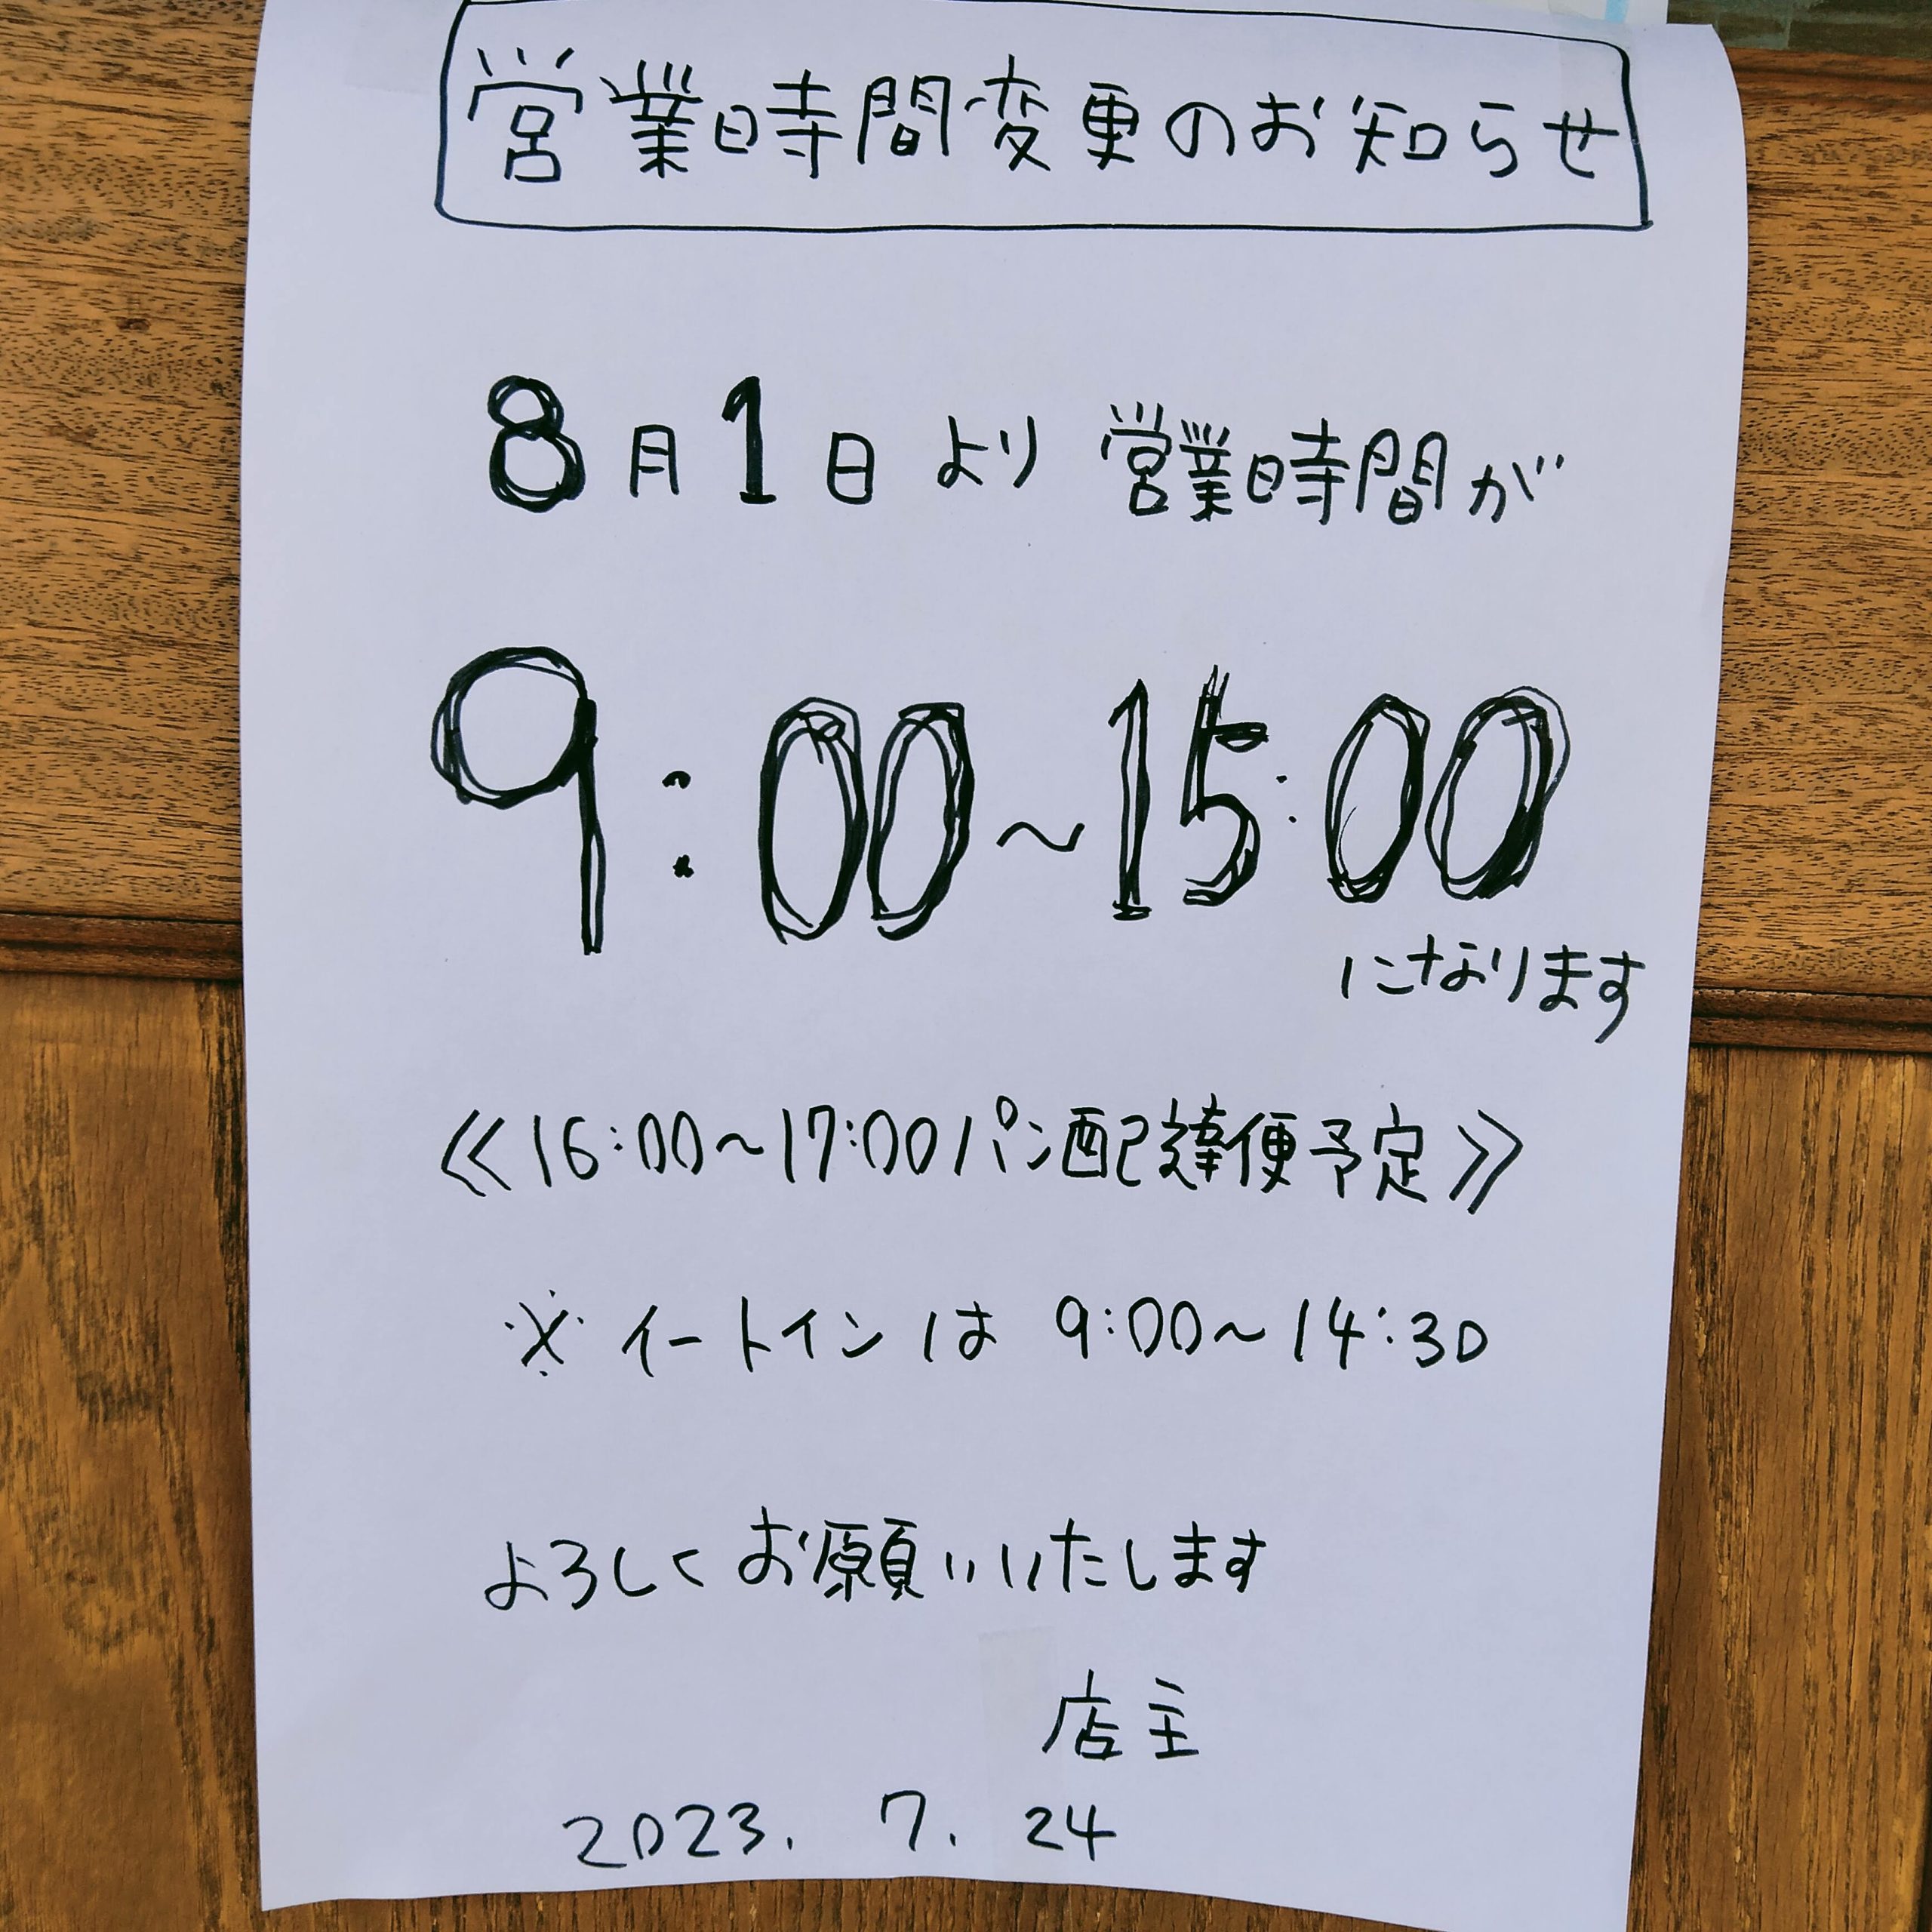 営業時間変更のお知らせ
8月1日より 営業時間が
9:00～15:00
になります
≪16:00～17:00パン配達便予定≫
※イートインは 9:00～14:30
よろしくお願いいたします
店主
2023. 7. 24